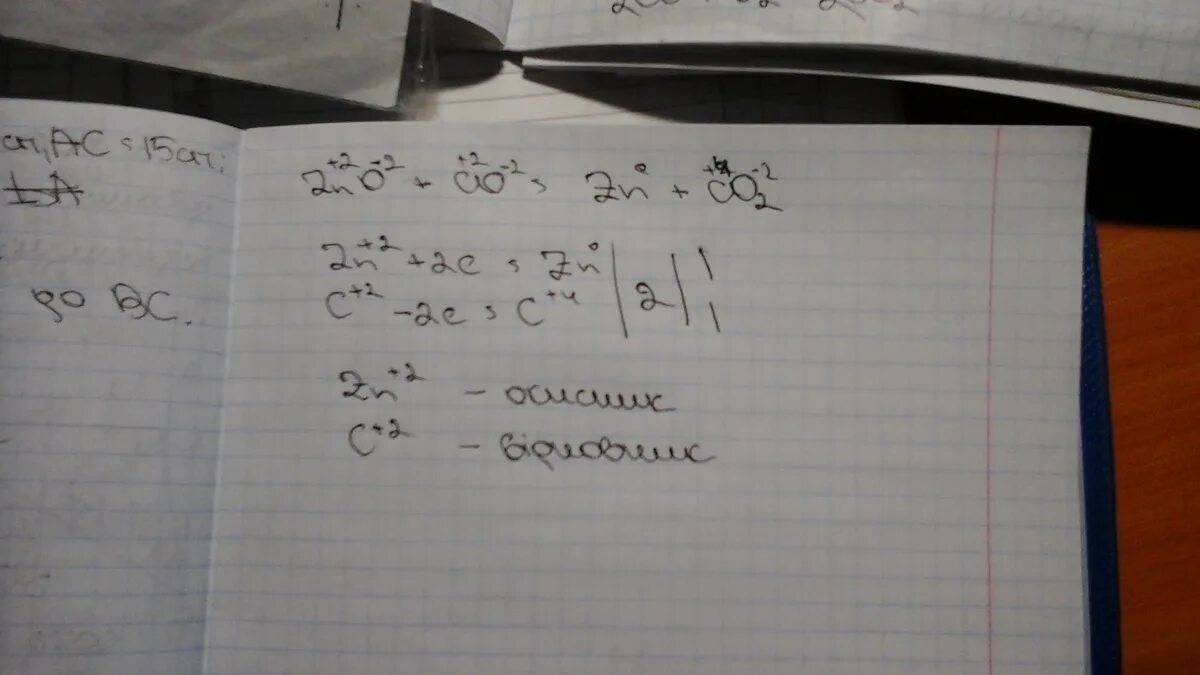 см, AC = 15 см;
до BC.
Zn⁺²O⁻² + C⁺²O⁻² = Zn⁰ + C⁺⁴O₂⁻²
Zn⁺² + 2e = Zn⁰ | 2 | 1
C⁺² - 2e = C⁺⁴ | 2 | 1
Zn⁺² - окисник
C⁺² - відновник